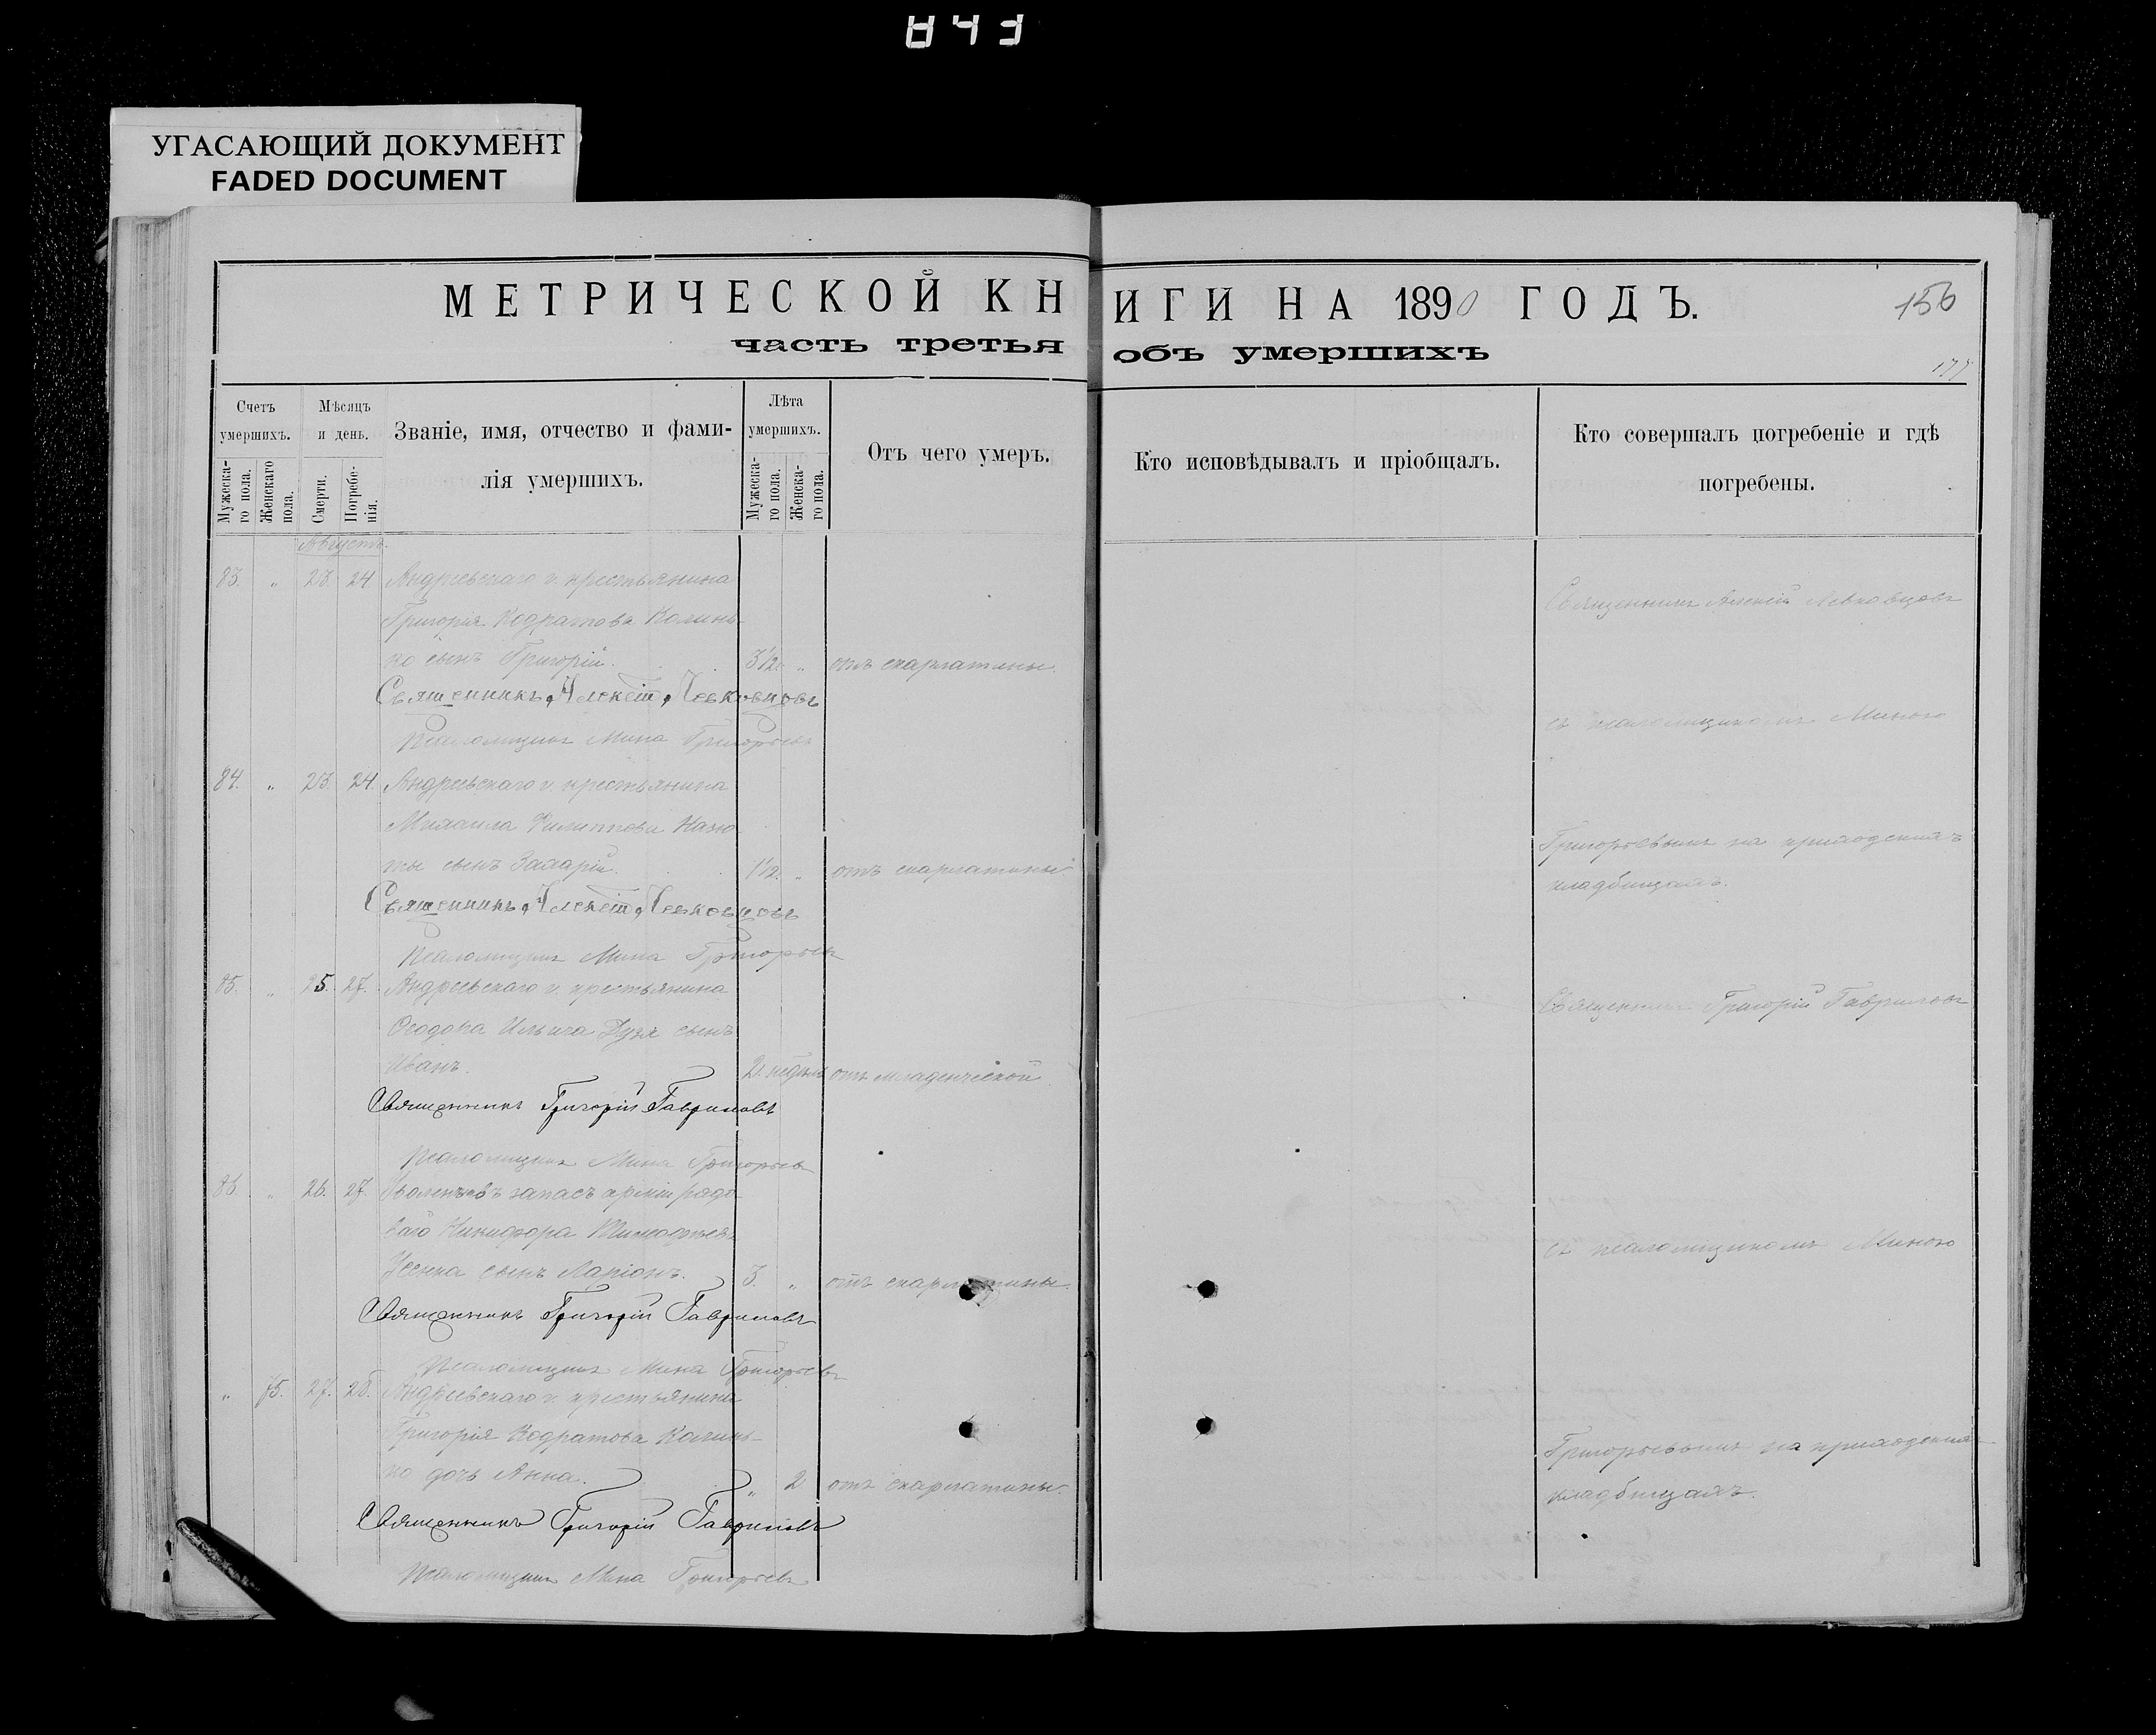 843
УГАСАЮЩИЙ ДОКУМЕНТ
FADED DOCUMENT
МЕТРИЧЕСКОЙ КНИГИ НА 1890 ГОДЪ.
156
часть третья объ умершихъ
177
Счетъ умершихъ.
Мужеска-го пола.
Женскаго пола.
Мѣсяцъ и день.
Смерти.
Погребе-нія.
Званіе, имя, отчество и фами-
лія умершихъ.
Лѣта умершихъ.
Мужеска-го пола.
Женска-го пола.
Отъ чего умеръ.
Кто исповѣдывалъ и пріобщалъ.
Кто совершалъ погребеніе и гдѣ
погребены.
Августъ.
83. " 23. 24 Андреевскаго с. крестьянина
Григорія Кодратова Калинь-
ко сынъ Григорій. 3½ " отъ скарлатины.
Священникъ Алексій Левковцовъ
Псаломщикъ Мина Григорьевъ
84. " 23. 24. Андреевскаго с. крестьянина
Михаила Филиппова
сынъ Захарій. 1½ " отъ скарлатины
Священникъ Алексій Левковцовъ
Псаломщикъ Мина Григорьевъ
85. " 25. 27. Андреевскаго с. крестьянина
Ѳеодора Ильича сынъ
Иванъ. 2 недѣли отъ младенческой
Священникъ Григорій Гавриловъ
Псаломщикъ Мина Григорьевъ
86. " 26. 27. въ запасъ арміи рядо-
ваго Никифора Тимоѳеева
сынъ Ларіонъ. 3 " отъ скарлатины.
Священникъ Григорій Гавриловъ
Псаломщикъ Мина Григорьевъ
" 75. 27. 28. Андреевскаго с. крестьянина
Григорія Кодратова Калинь-
ко дочь Анна. " 2 отъ скарлатины.
Священникъ Григорій Гавриловъ
Псаломщикъ Мина Григорьевъ
Священникъ Алексій Левковцовъ
съ псаломщикомъ Миною
Григорьевымъ на приходскихъ
кладбищахъ.
Священникъ Григорій Гавриловъ
съ псаломщикомъ Миною
Григорьевымъ на приходскихъ
кладбищахъ.